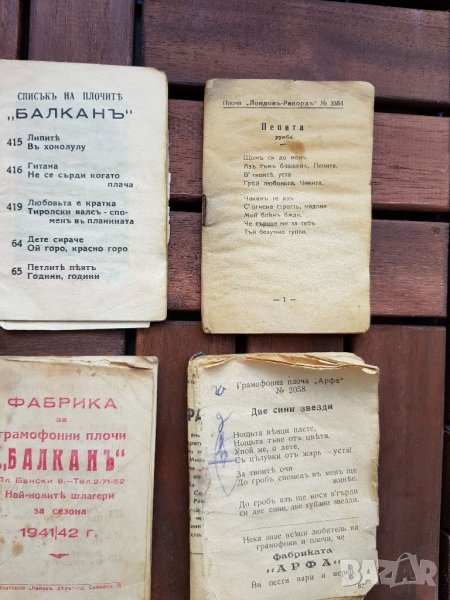 СПИСЪКЪ НА ПЛОЧИТѢ
„БАЛКАНЪ"
415 Липитѣ
Въ хонолулу
416 Гитана
Не се сърди когато
плача
419 Любовьта е кратка
Тиролски валсъ - спо-
менъ въ планината
64 Дете сираче
Ой горо, красно горо
65 Петлитѣ пѣятъ
Години, години
Плочи „Лондонъ-Рекордъ" № 3384
Пепита
румба
Щомъ си до менъ
Азъ съмъ блаженъ, Пепита,
В' твоитѣ уста
Грѣй любовьта, Чикита,
Чакамъ те азъ
С' огнена страсть, мадона
Мой блѣнъ бѫди,
Че сърдце ми за тебъ
Тъй безумно тупти.
— 1 —
ФАБРИКА
за
грамофонни плочи
„БАЛКАНЪ"
Пл. Бански 8.—Тел. 2-71-52
Най-новитѣ шлагери
за сезона
1941/42 г.
Грамофонна плоча „Арфа"
№ 2058
Две сини звезди
Нощьта вѣщи плете,
Нощьта тъче отъ цвѣтя.
Упой ме, о дете,
Съ цѣлувки отъ жарь — уста!
За твоитѣ очи
До гробъ споменъ въ менъ ще
живѣе.
До гробъ азъ ще нося в'гърди
си две сини, две хубави звезди.
Нека знае всѣки любитель на
грамофони и плочи, че
Фабриката
„АРФА"
Ви пести пари и
BAZAR